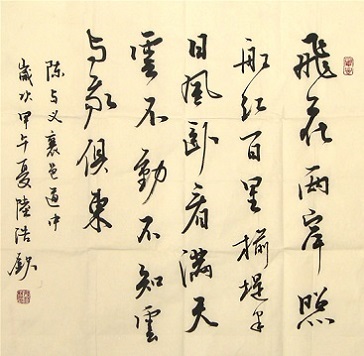 飛花兩岸照
船紅百里榆堤半
日風卧看滿天
雲不動不知雲
与我俱東
陳与义襄邑道中
歲次甲午夏陸浩